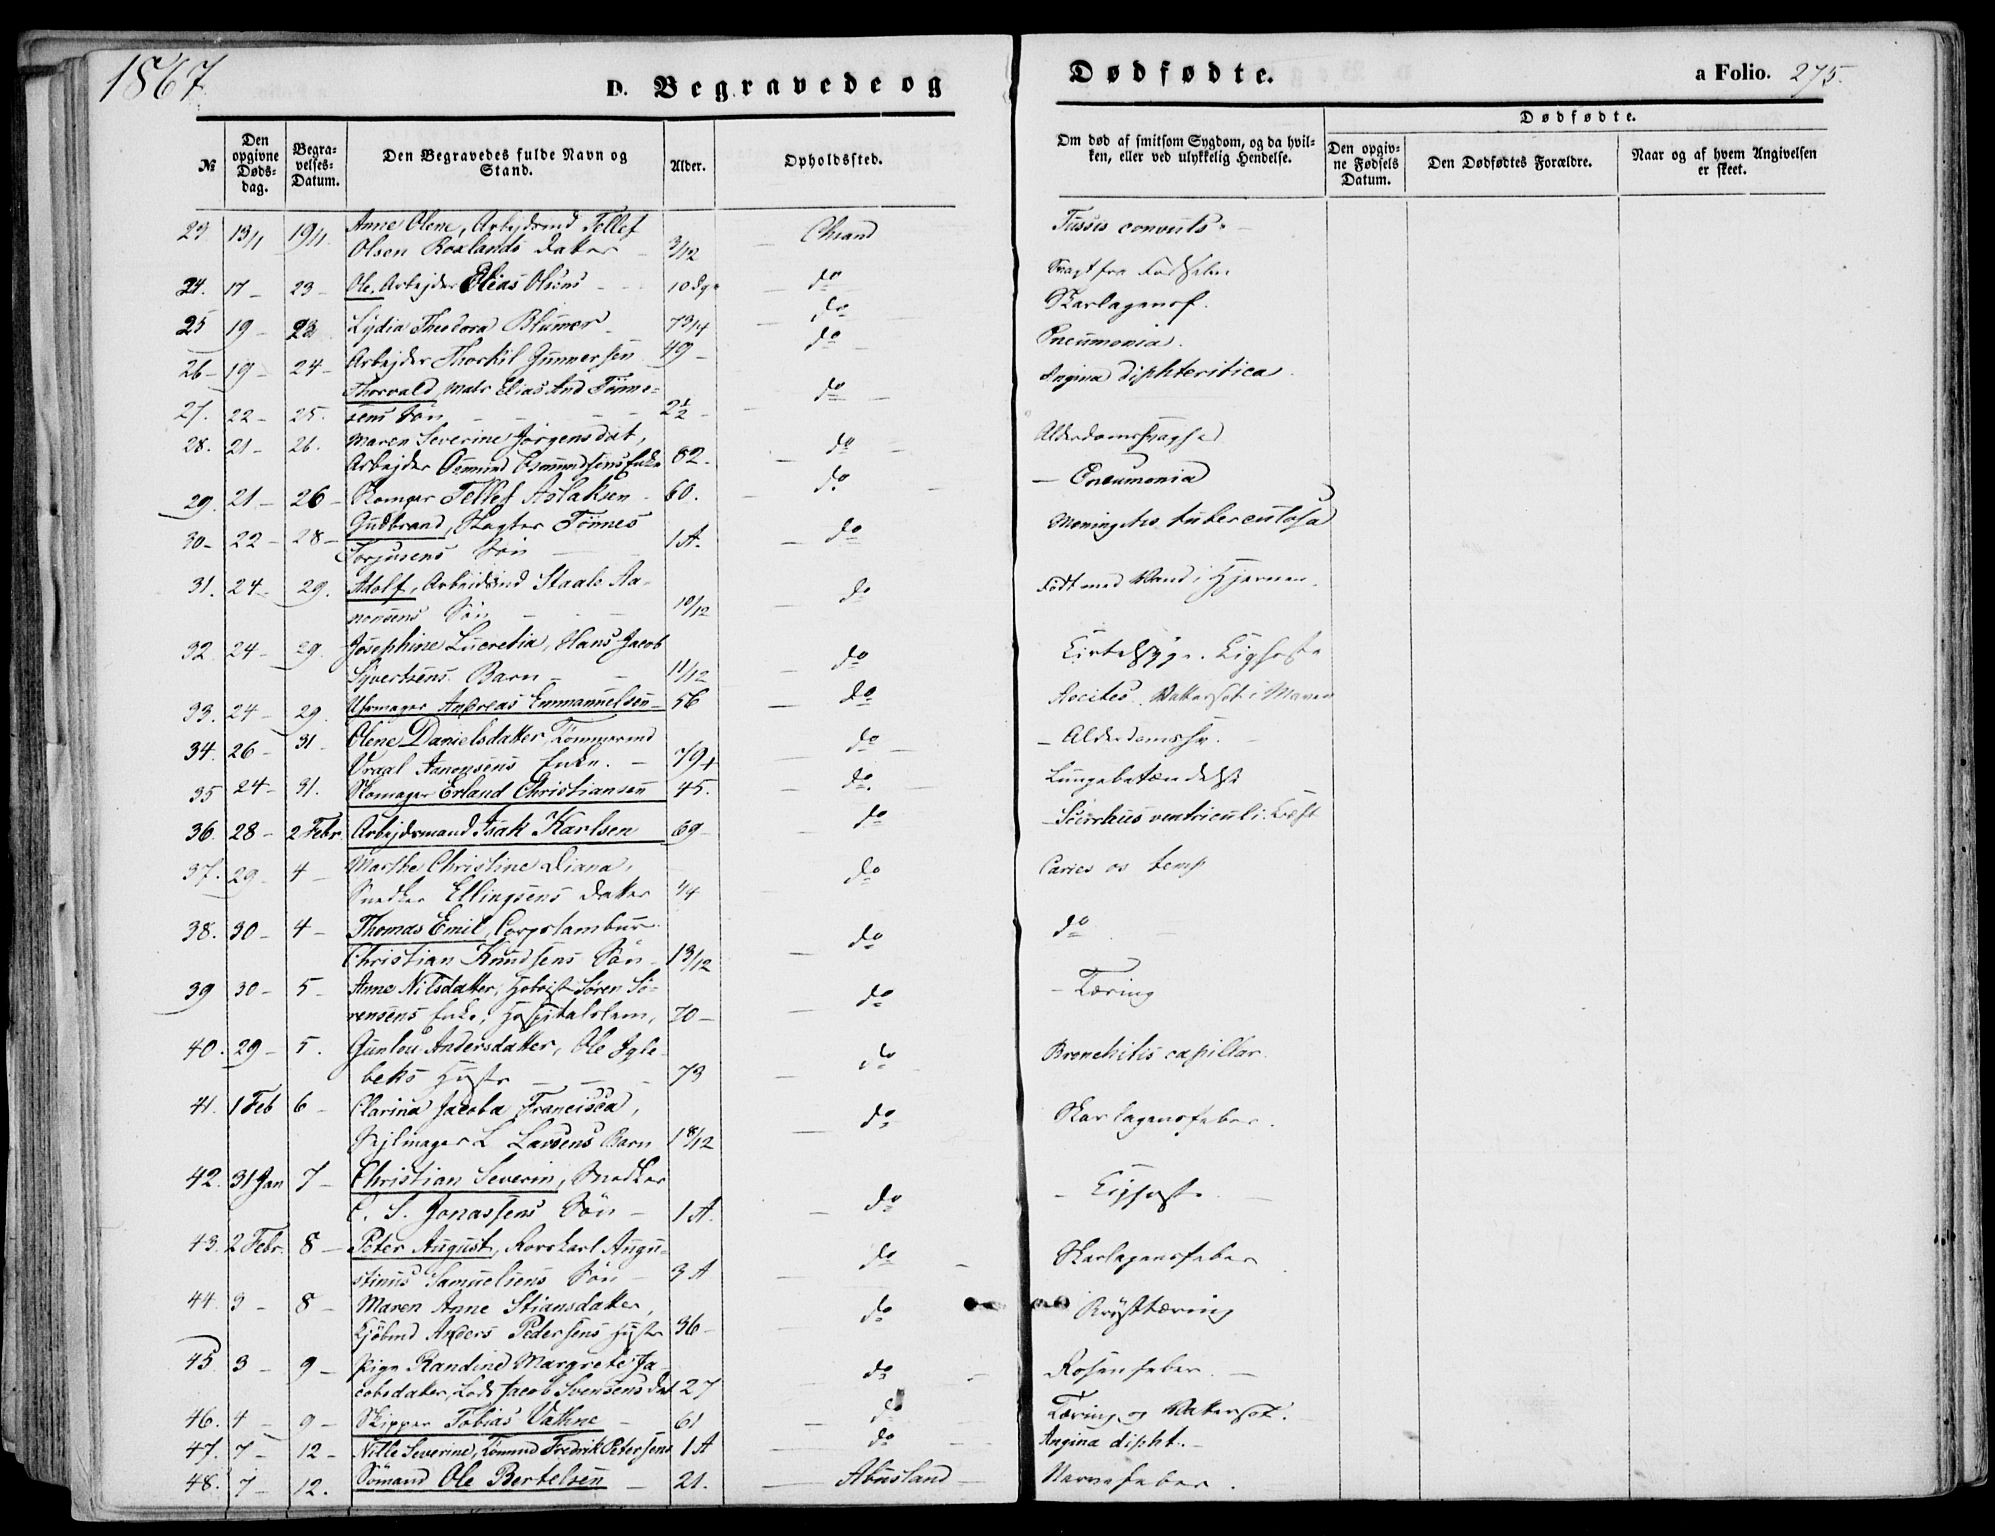 1867
D. Begravede og Dødfødte. a Folio. 275.
№ | Den opgivne Dødsdag. | Begravelses-Datum. | Den Begravedes fulde Navn og Stand. | Alder. | Opholdssted. | Om død af smitsom Sygdom, og da hvilken, eller ved ulykkelig Hendelse. | Dødfødte. | Den opgivne Fødsels Datum. | Den Dødfødtes Forældre. | Naar og af hvem Angivelsen er skeet.
23 13/1 19/1. Anne Olene, Arbejdsmd Tellef
Olsen Roxlands Datter 3/12 Chsand Tussis convuls.
24. 17 - 23 - Ole, Arbejder Elias Olsens 10 Dg. do Svagt fra Fødselen
25 19 - 23 Lydia Theodora Blumer 7 3/4 do Skarlagensf.
26 - 19 - 24 - Arbejder Thorkil Gunnersen 49 - do Pneumonia.
Thorvald, Matr Elias And Tønne-
27. 22 - 25. sens Søn 2 1/2 do Angina diphteritica.
28. 21 - 26. Maren Severine Jørgensdat,
Arbejder Osmund Osmundsens Enke 82. do Alderdomssvaghed
29. 21 - 26 - Skomager Tellef Aslaksen 60. do - Pneumonia
30 - 22 - 28 - Gudbrand, Slagter Tønnes
Torjusens Søn 1 A. do Meningitis tuberculosa
31. 24 - 29. Adolf, Arbeidsmd Staale Aa-
nensens Søn 10/12 do Født med Vand i Hjernen.
32. 24 - 29. Josephine Lucretia, Hans Jacob
Syvertsens Barn 11/12 do Kirtelsyge. Kighoste
33. 24 - 29. Uhrmager Andreas Emmanuelsen - 56 do Ascites. Vattersot i Maven
34. 26 - 31. Olene Danielsdatter, Tømmermd
Vraal Aanensens Enke. 79 do - Alderdomssv.
35 24 - 31. Skomager Erland Christiansen 45. do. Lungebetændelse
36. 28 - 2 Febr Arbejdsmand Isak Karlsen 69 - do - Scirrhus ventriculi. Kræft
37. 29 - 4 - Marthe Christine Diana,
Snedker Ellingsens Datter 1/4 do Caries os temp
38. 30 - 4 - Thomas Emil, Corpstambur
Christian Knudsens Søn 13/12 do do
39 30 - 5 - Anne Nilsdatter, Søren Sø-
rensens Enke, Hospitalslem, 70 - do - Tæring
40. 29 - 5. Gunlou Andersdatter, Ole Igle-
beks Hustr 73 do Bronchitis capillar.
41. 1 Feb 6 - Clarina Jacoba Francisca,
Sejlmager L Larsens Barn 1 8/12 do Skarlagensfeber.
42. 31 Jan 7 - Christian Severin, Snedker
C. S. Jonassens Søn - 1 A. do - Kighoste
43. 2 Febr. 8 - Peter August, Rorskarl Augu-
stinus Samuelsens Søn - 3 A do Skarlagensfeber
44. 3 - 8 - Maren Anne Stiansdatter,
Kjøbmd Anders Pedersens Hustr 36 - do Brysttæring
45 3 - 9 - Pige Randine Margrete Ja-
cobsdatter, Lods Jacob Svensens Dat 27 do Rosenfeber.
46. 4 - 9 - Skipper Tobias Vathne - 61 do Tæring og Vattersot.
47. 7 - 12 - Nille Severine, Tømmd Fredrik Petersens 1 A do Angina dipht.
48. 7 - 12. Sømand Ole Bertelsen - 21. Abusland Nervefeber.